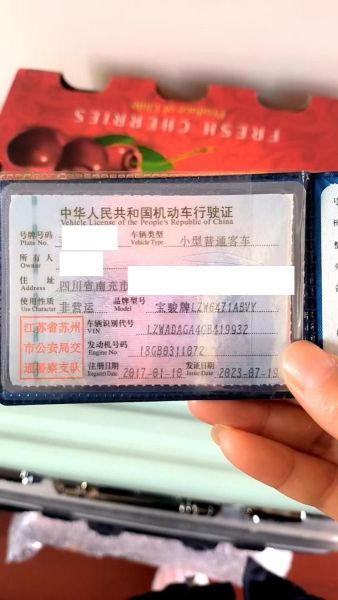 FRESH CHERRIES
Produce of Chile
中华人民共和国机动车行驶证
Vehicle License of the People's Republic of China
号牌号码 Plate No. 车辆类型 Vehicle Type 小型普通客车
所有人 Owner
住址 Address 四川省南充市
使用性质 Use Character 非营运 品牌型号 Model 宝骏牌LZW6471ABVY
江苏省苏州
市公安局交
通警察支队
车辆识别代号 VIN LZWADAGA4GB419932
发动机号码 Engine No. 18GB0311072
注册日期 Register Date 2017-01-18 发证日期 Issue Date 2023-07-19